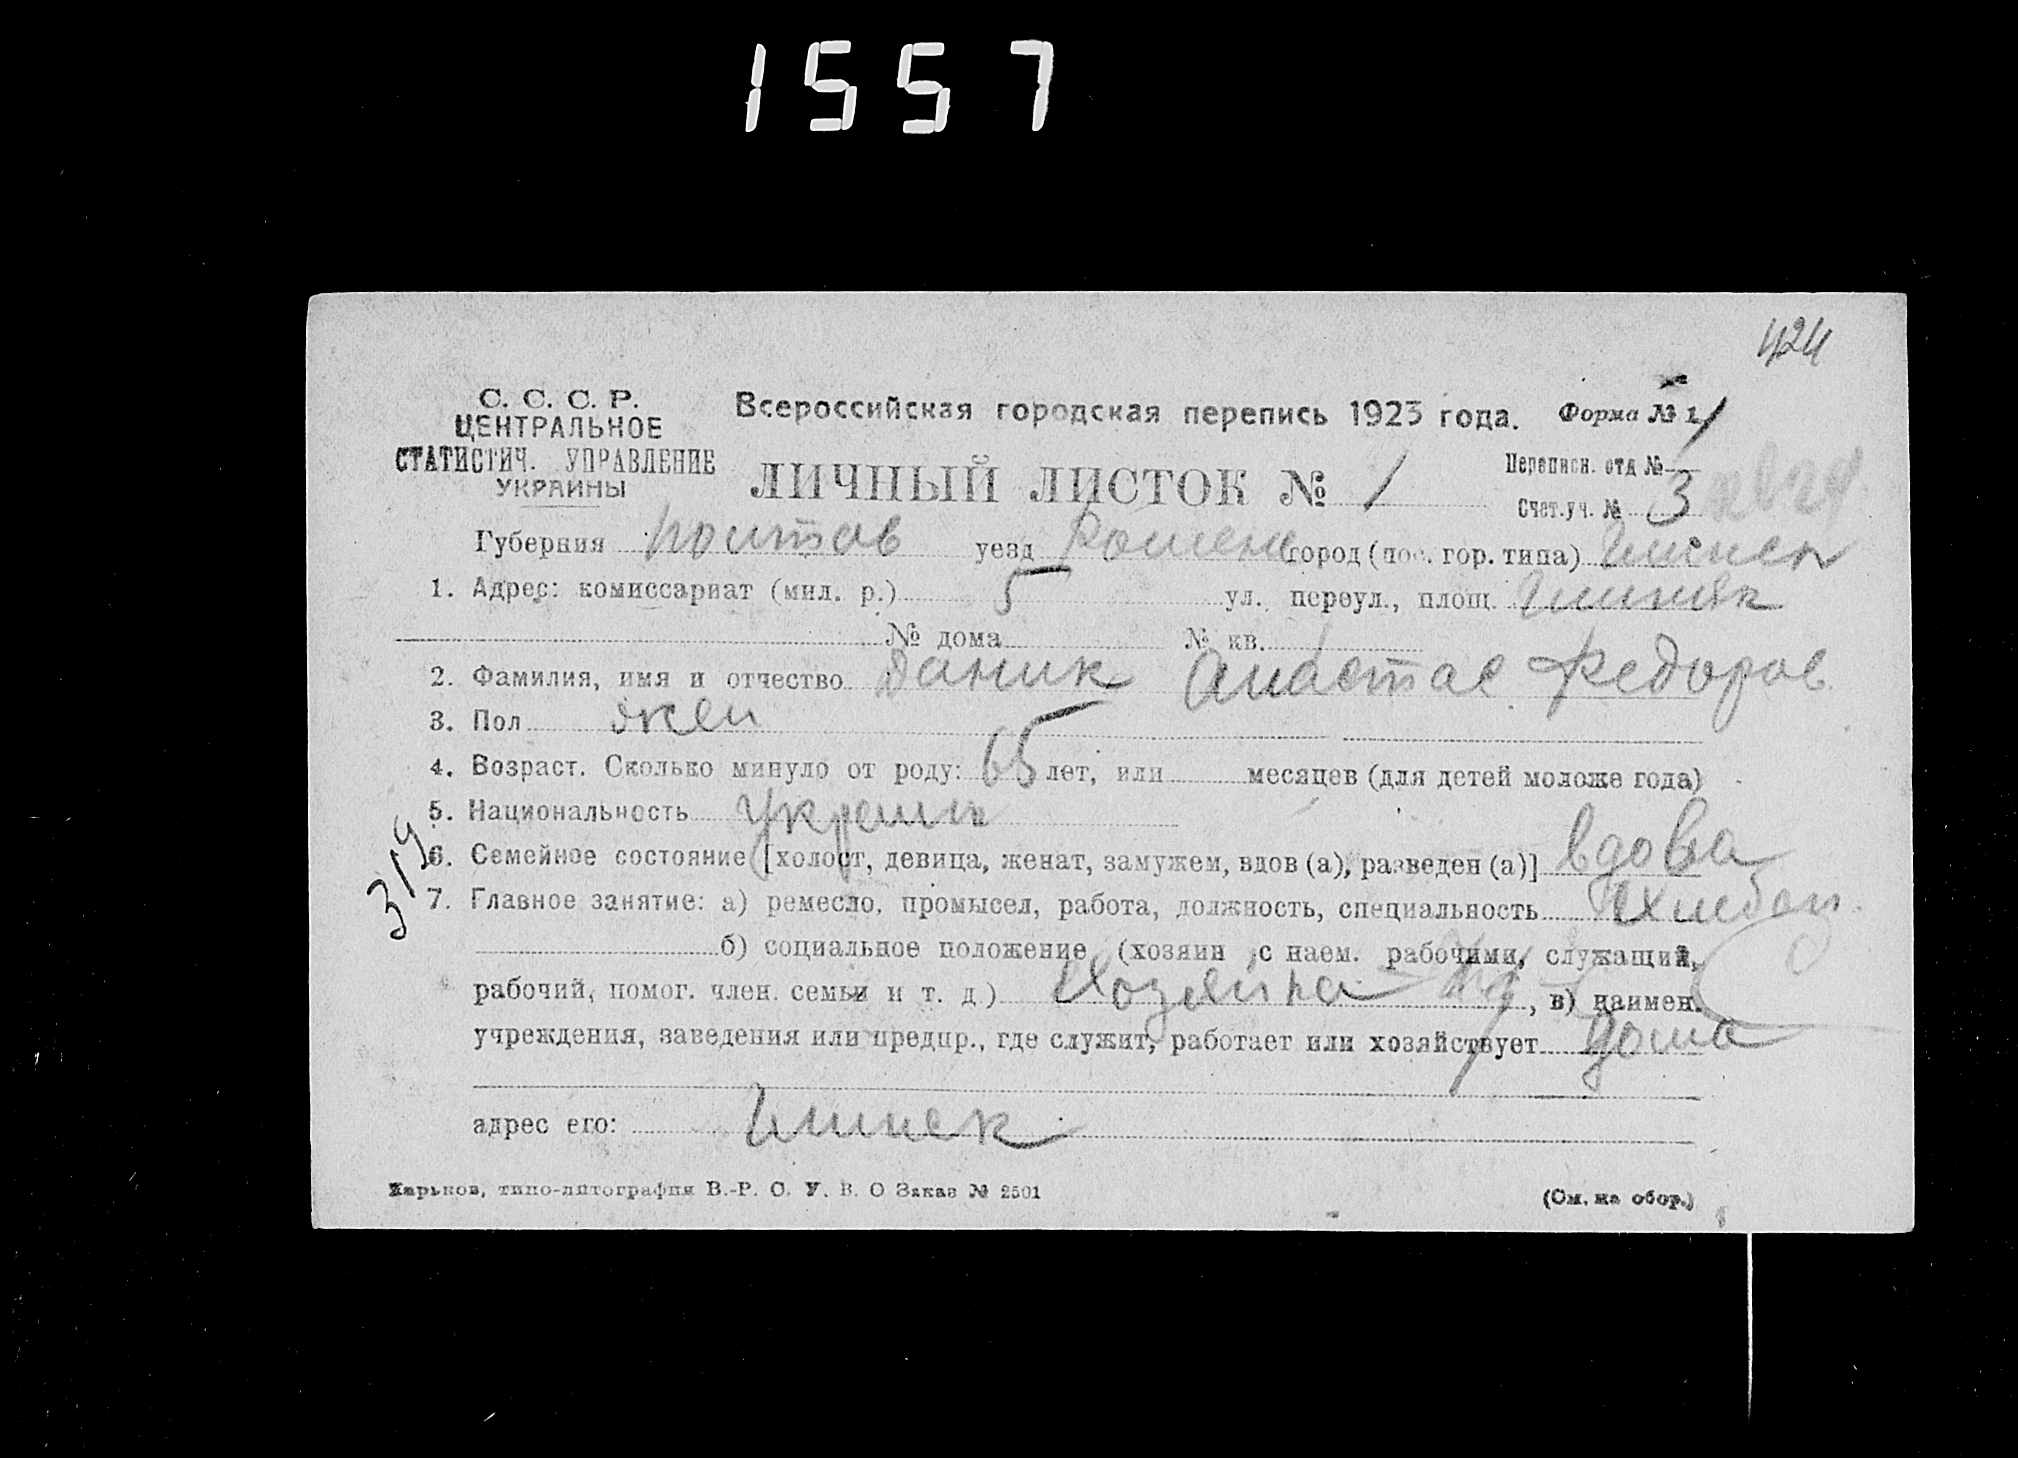 1557
424
С. С. С. Р.
ЦЕНТРАЛЬНОЕ
СТАТИСТИЧ. УПРАВЛЕНИЕ
УКРАИНЫ
Всероссийская городская перепись 1923 года. Форма № 1
ЛИЧНЫЙ ЛИСТОК № 1
Переписн. отд №
Счет. уч. № 3
Губерния Полтав уезд Ромен город (пос. гор. типа)
1. Адрес: комиссариат (мил. р.) 5 ул. переул., площ.
№ дома № кв.
2. Фамилия, имя и отчество Даник Анастас Федоров
3. Пол жен
4. Возраст. Сколько минуло от роду: 65 лет, или месяцев (для детей моложе года)
5. Национальность Украин
6. Семейное состояние [холост, девица, женат, замужем, вдов (а), разведен (а)] вдова
7. Главное занятие: а) ремесло, промысел, работа, должность, специальность хлебоп.
б) социальное положение (хозяин с наем. рабочими, служащий,
рабочий, помог. член. семьи и т. д) Хозяйка , в) наимен.
учреждения, заведения или предпр., где служит, работает или хозяйствует дома
адрес его:
3119
Харьков, типо-литография В.-Р. С. У. В. О Заказ № 2501
(См. на обор.)